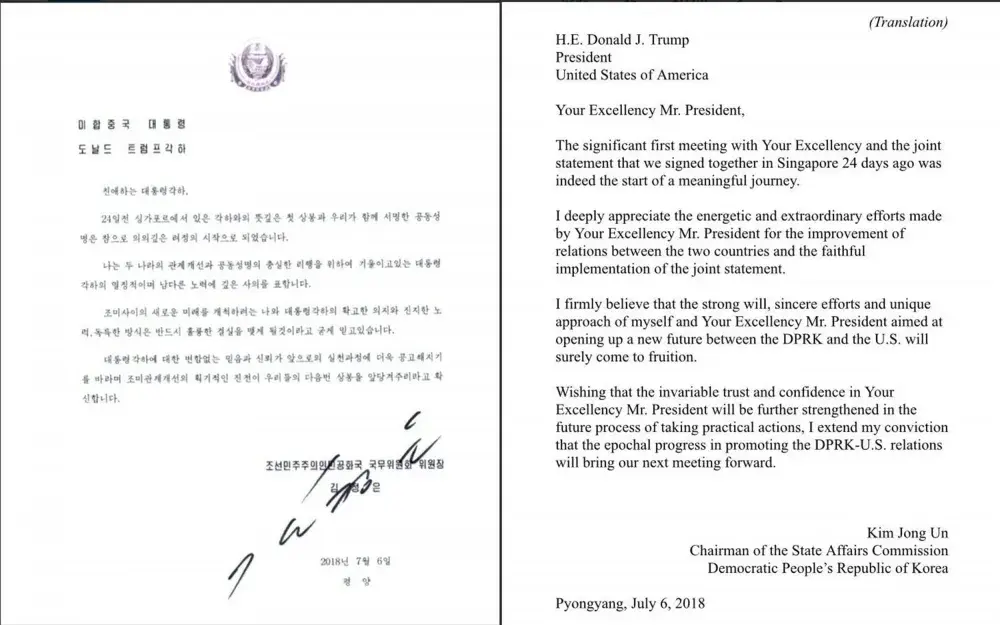 미합중국 대통령
도날드 트럼프각하
친애하는 대통령각하,
24일전 싱가포르에서 있은 각하와의 뜻깊은 첫 상봉과 우리가 함께 서명한 공동성
명은 참으로 의의깊은 려정의 시작으로 되였습니다.
나는 두 나라의 관계개선과 공동성명의 충실한 리행을 위하여 기울이고있는 대통령
각하의 열정적이며 남다른 노력에 깊은 사의를 표합니다.
조미사이의 새로운 미래를 개척하려는 나와 대통령각하의 확고한 의지와 진지한 노
력, 독특한 방식은 반드시 훌륭한 결실을 맺게 될것이라고 굳게 믿고있습니다.
대통령각하에 대한 변함없는 믿음과 신뢰가 앞으로의 실천과정에 더욱 공고해지기
를 바라며 조미관계개선의 획기적인 진전이 우리들의 다음번 상봉을 앞당겨주리라고 확
신합니다.
조선민주주의인민공화국 국무위원회 위원장
김정은
2018년 7월 6일
평양
(Translation)
H.E. Donald J. Trump
President
United States of America
Your Excellency Mr. President,
The significant first meeting with Your Excellency and the joint
statement that we signed together in Singapore 24 days ago was
indeed the start of a meaningful journey.
I deeply appreciate the energetic and extraordinary efforts made
by Your Excellency Mr. President for the improvement of
relations between the two countries and the faithful
implementation of the joint statement.
I firmly believe that the strong will, sincere efforts and unique
approach of myself and Your Excellency Mr. President aimed at
opening up a new future between the DPRK and the U.S. will
surely come to fruition.
Wishing that the invariable trust and confidence in Your
Excellency Mr. President will be further strengthened in the
future process of taking practical actions, I extend my conviction
that the epochal progress in promoting the DPRK-U.S. relations
will bring our next meeting forward.
Kim Jong Un
Chairman of the State Affairs Commission
Democratic People's Republic of Korea
Pyongyang, July 6, 2018